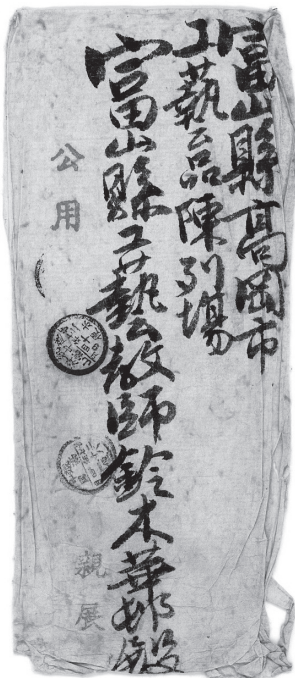 富山縣高岡市
工藝品陳列場
富山縣工藝教師鈴木華邨殿
公用
親展